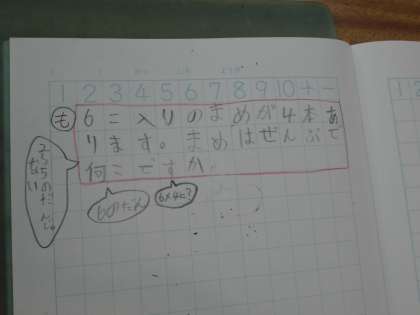 1 2 3 4 5 6 7 8 9 10 + -
も
6こ入りのまめが4本あ
ります。まめはぜんぶで
何こですか。
6のだん
6×4に?